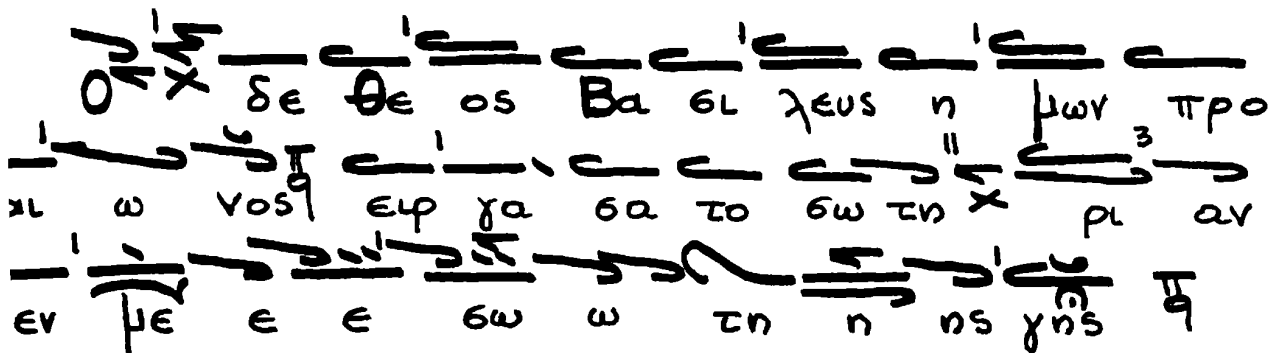 Ο δε θε ος Βα σι λευς η μων προ
αι ω νος ειρ γα σα το σω τη ρι αν
εν με ε ε σω ω τη η ης γης